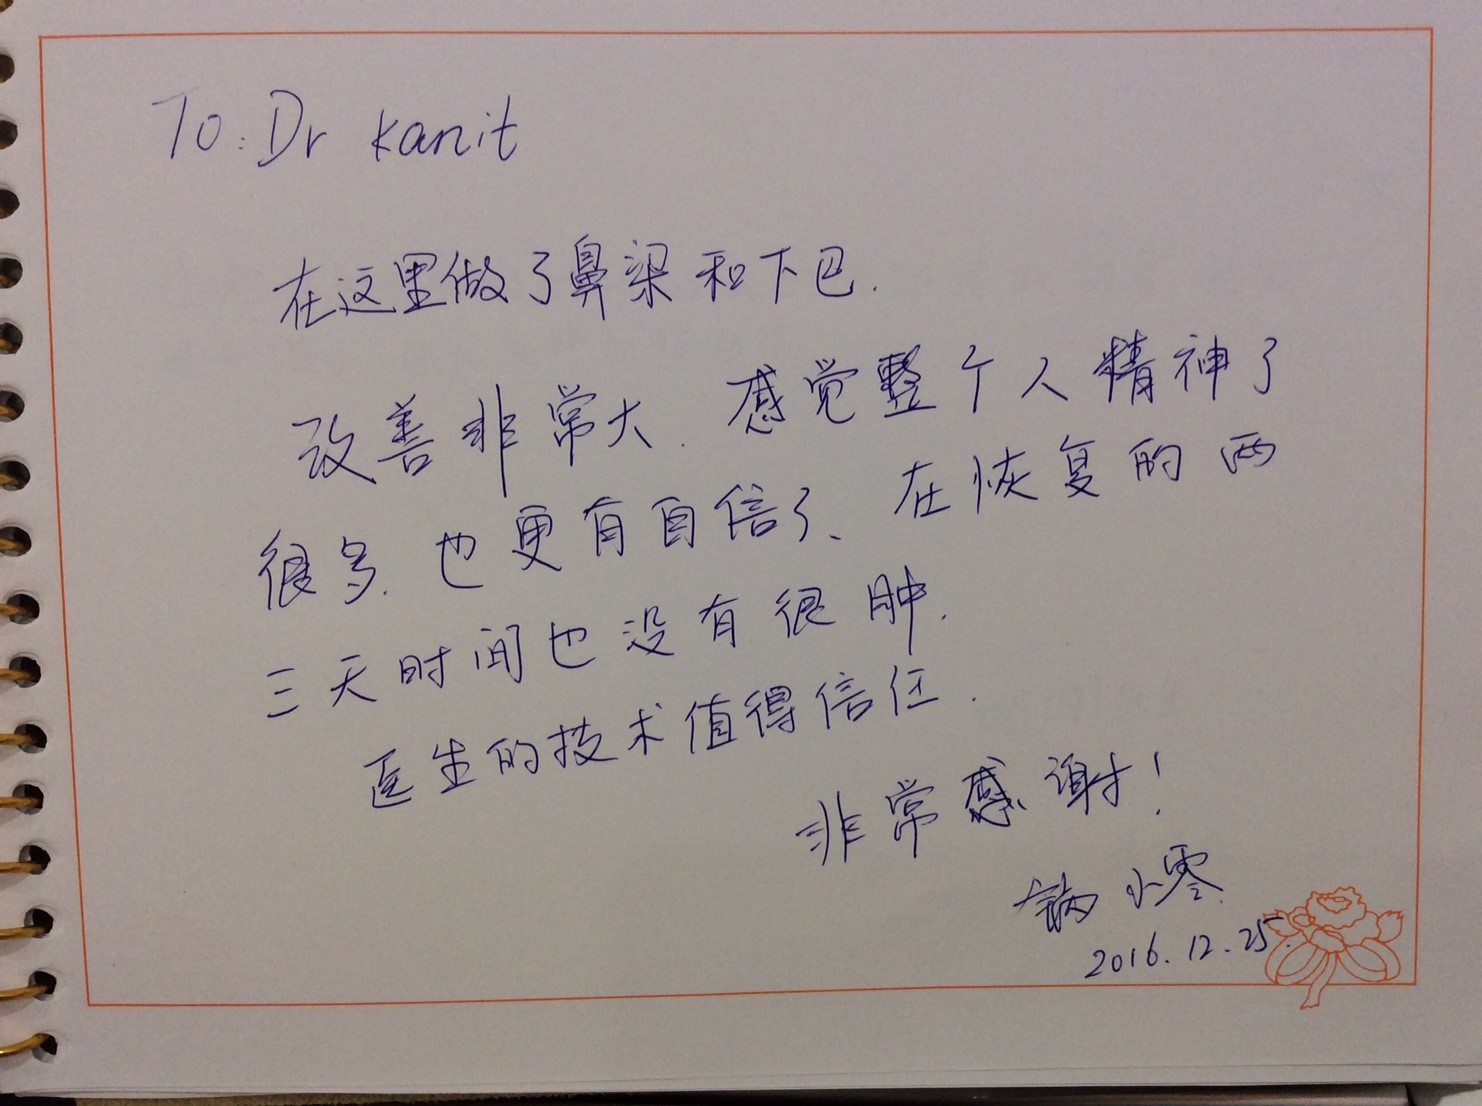 To: Dr kanit
在这里做了鼻梁和下巴.
改善非常大. 感觉整个人精神了
很多. 也更有自信了、在恢复的两
三天时间也没有很肿.
医生的技术值得信任.
非常感谢!
小零
2016.12.25.